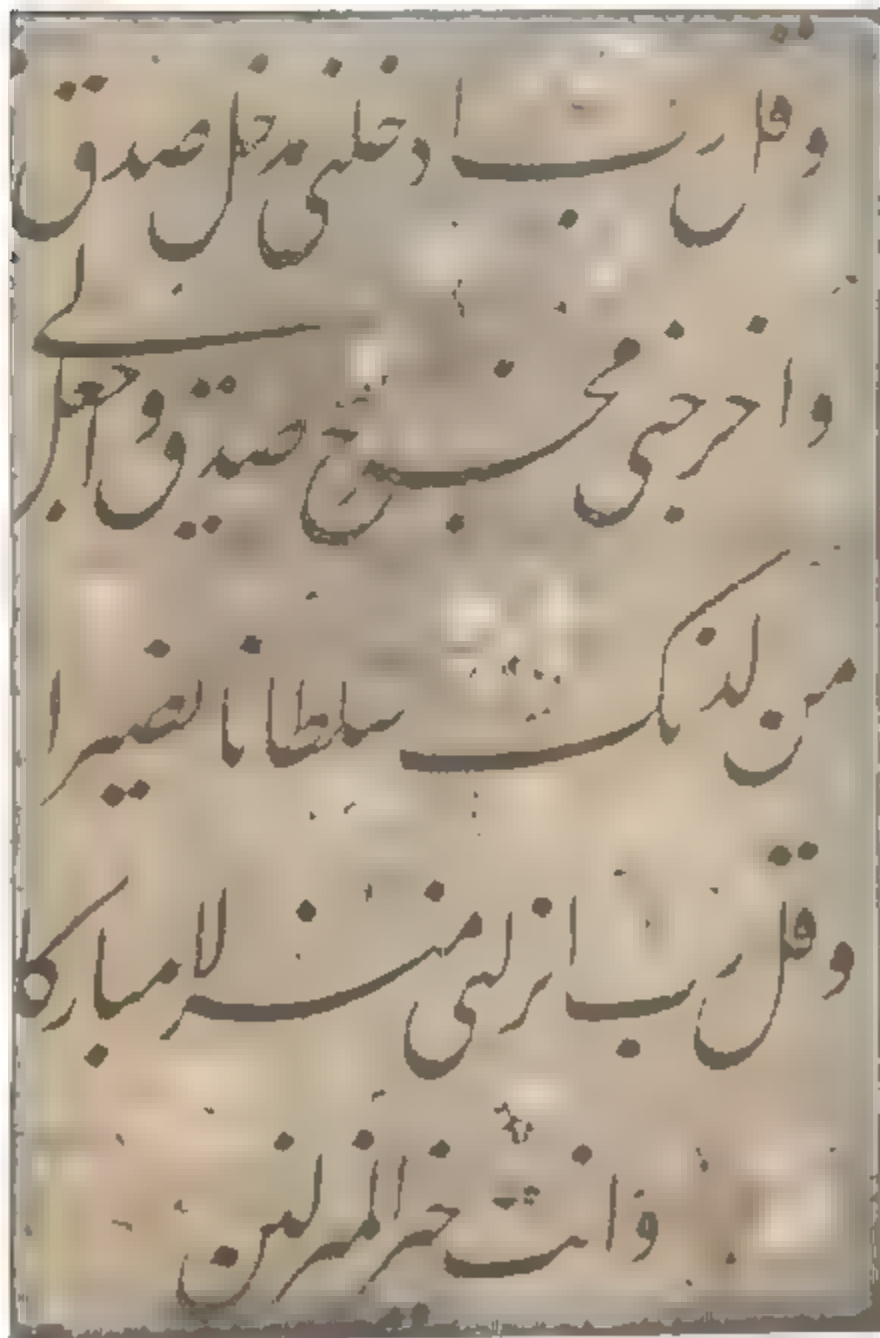 وقل رب ادخلنی مدخل صدق
واخرجنی مخرج صدق واجعل لے
من لدنک سلطانا نصیرا
وقل رب انزلنی منزلا مبارکا
وانت خیر المنزلین